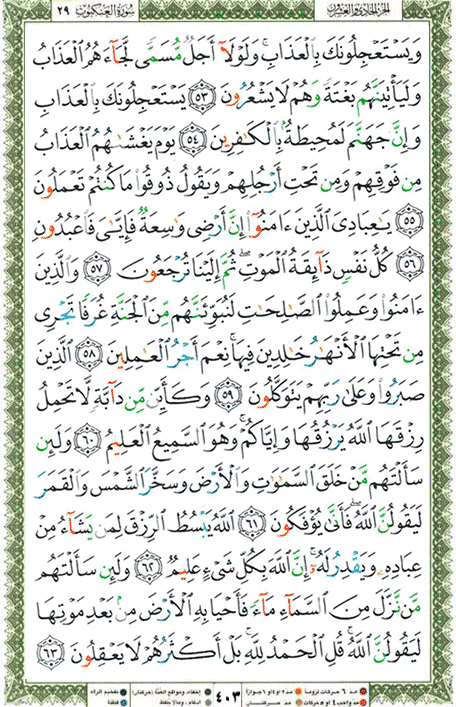 الجزء الحادي والعشرون
سورة العنكبوت ٢٩
وَيَسْتَعْجِلُونَكَ بِالْعَذَابِ ۚ وَلَوْلَا أَجَلٌ مُّسَمًّى لَّجَاءَهُمُ الْعَذَابُ
وَلَيَأْتِيَنَّهُم بَغْتَةً وَهُمْ لَا يَشْعُرُونَ ٥٣ يَسْتَعْجِلُونَكَ بِالْعَذَابِ
وَإِنَّ جَهَنَّمَ لَمُحِيطَةٌ بِالْكَافِرِينَ ٥٤ يَوْمَ يَغْشَاهُمُ الْعَذَابُ
مِن فَوْقِهِمْ وَمِن تَحْتِ أَرْجُلِهِمْ وَيَقُولُ ذُوقُوا مَا كُنتُمْ تَعْمَلُونَ
٥٥ يَا عِبَادِيَ الَّذِينَ ءَامَنُوا إِنَّ أَرْضِي وَاسِعَةٌ فَإِيَّايَ فَاعْبُدُونِ
٥٦ كُلُّ نَفْسٍ ذَائِقَةُ الْمَوْتِ ۖ ثُمَّ إِلَيْنَا تُرْجَعُونَ ٥٧ وَالَّذِينَ
ءَامَنُوا وَعَمِلُوا الصَّالِحَاتِ لَنُبَوِّئَنَّهُم مِّنَ الْجَنَّةِ غُرَفًا تَجْرِي
مِن تَحْتِهَا الْأَنْهَارُ خَالِدِينَ فِيهَا ۚ نِعْمَ أَجْرُ الْعَامِلِينَ ٥٨ الَّذِينَ
صَبَرُوا وَعَلَىٰ رَبِّهِمْ يَتَوَكَّلُونَ ٥٩ وَكَأَيِّن مِّن دَابَّةٍ لَّا تَحْمِلُ
رِزْقَهَا اللَّهُ يَرْزُقُهَا وَإِيَّاكُمْ ۚ وَهُوَ السَّمِيعُ الْعَلِيمُ ٦٠ وَلَئِن
سَأَلْتَهُم مَّنْ خَلَقَ السَّمَاوَاتِ وَالْأَرْضَ وَسَخَّرَ الشَّمْسَ وَالْقَمَرَ
لَيَقُولُنَّ اللَّهُ ۖ فَأَنَّىٰ يُؤْفَكُونَ ٦١ اللَّهُ يَبْسُطُ الرِّزْقَ لِمَن يَشَاءُ مِنْ
عِبَادِهِ وَيَقْدِرُ لَهُ ۚ إِنَّ اللَّهَ بِكُلِّ شَيْءٍ عَلِيمٌ ٦٢ وَلَئِن سَأَلْتَهُم
مَّن نَّزَّلَ مِنَ السَّمَاءِ مَاءً فَأَحْيَا بِهِ الْأَرْضَ مِن بَعْدِ مَوْتِهَا
لَيَقُولُنَّ اللَّهُ ۚ قُلِ الْحَمْدُ لِلَّهِ ۚ بَلْ أَكْثَرُهُمْ لَا يَعْقِلُونَ ٦٣
٤٠٣